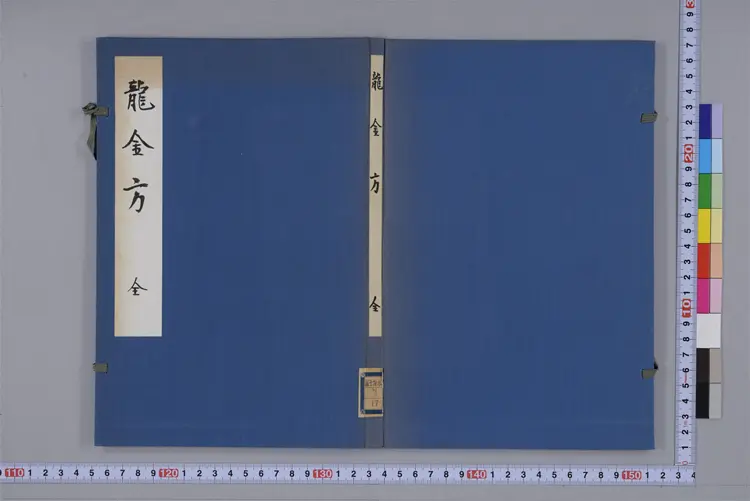 龍金方
全
龍金方
全
17
110 1 2 3 4 5 6 7 8 9 120 1 2 3 4 5 6 7 8 9 130 1 2 3 4 5 6 7 8 9 140 1 2 3 4 5 6 7 8 9 150 1 2 3 4
9 8 7 6 5 4 3 2 1 20 9 8 7 6 5 4 3 2 1 10 9 8 7 6 5 4 3 2 1